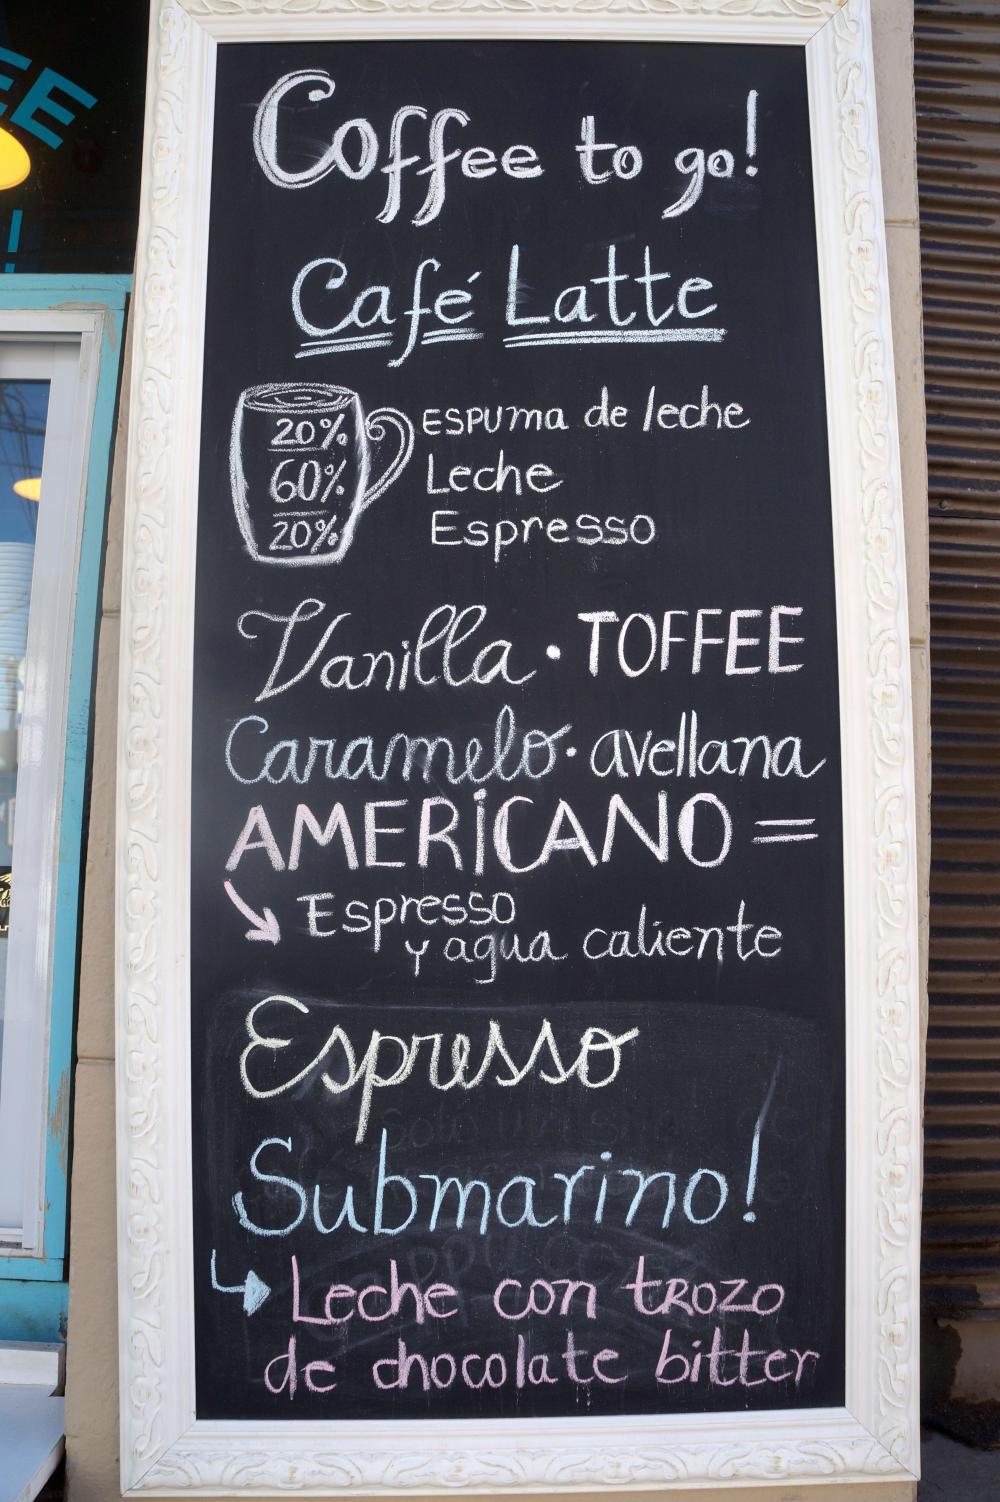 EE
Coffee to go!
Café Latte
20% ESPUMA de leche
60% Leche
20% Espresso
Vanilla · TOFFEE
Caramelo · avellana
AMERICANO =
Espresso
y agua caliente
Espresso
Submarino!
Leche con trozo
de chocolate bitter